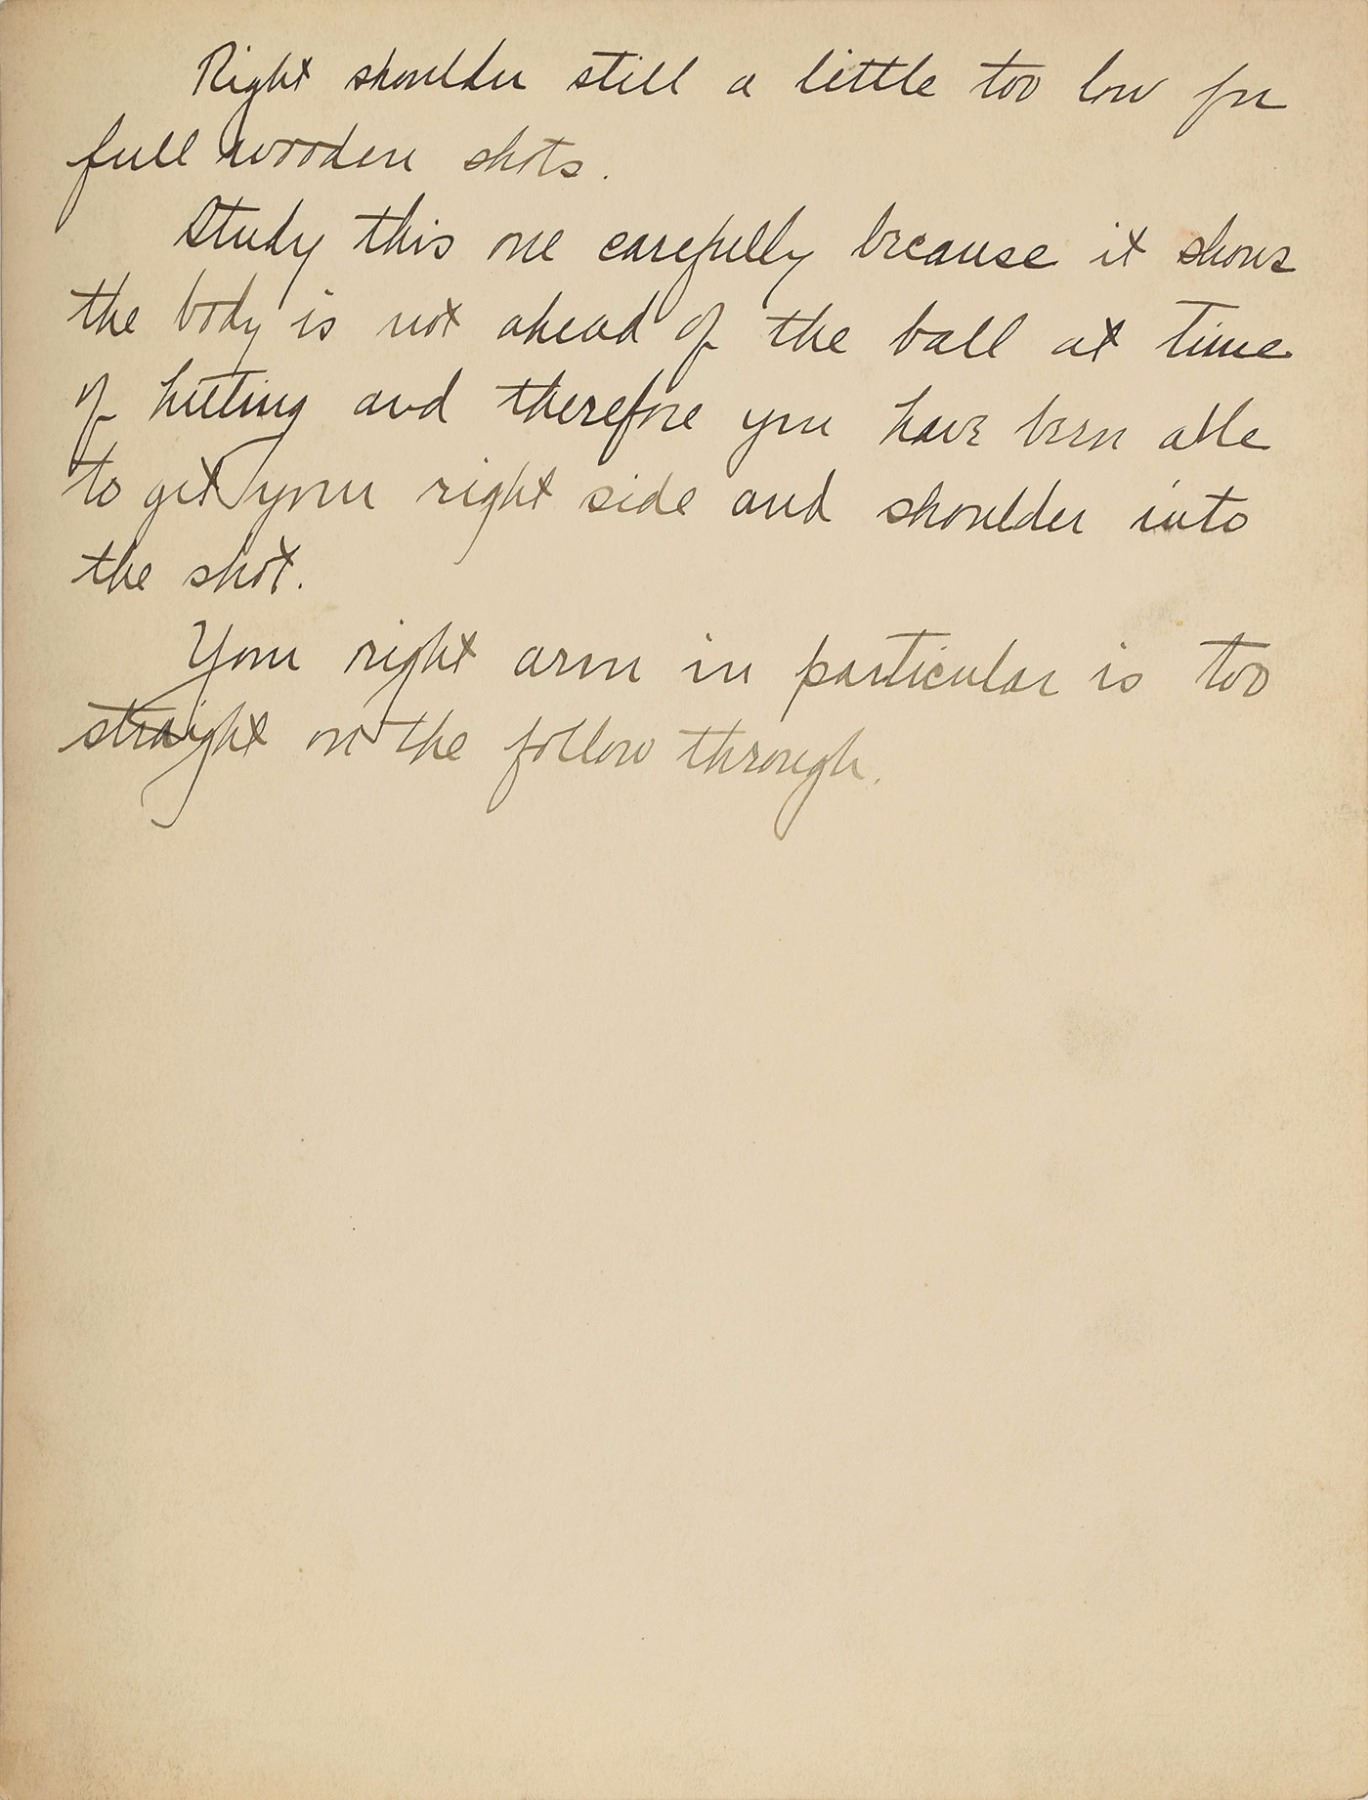 Right shoulder still a little too low for
full wooden shots.
Study this one carefully because it shows
the body is not ahead of the ball at time
of hitting and therefore you have been able
to get your right side and shoulder into
the shot.
Your right arm in particular is too
straight on the follow through.